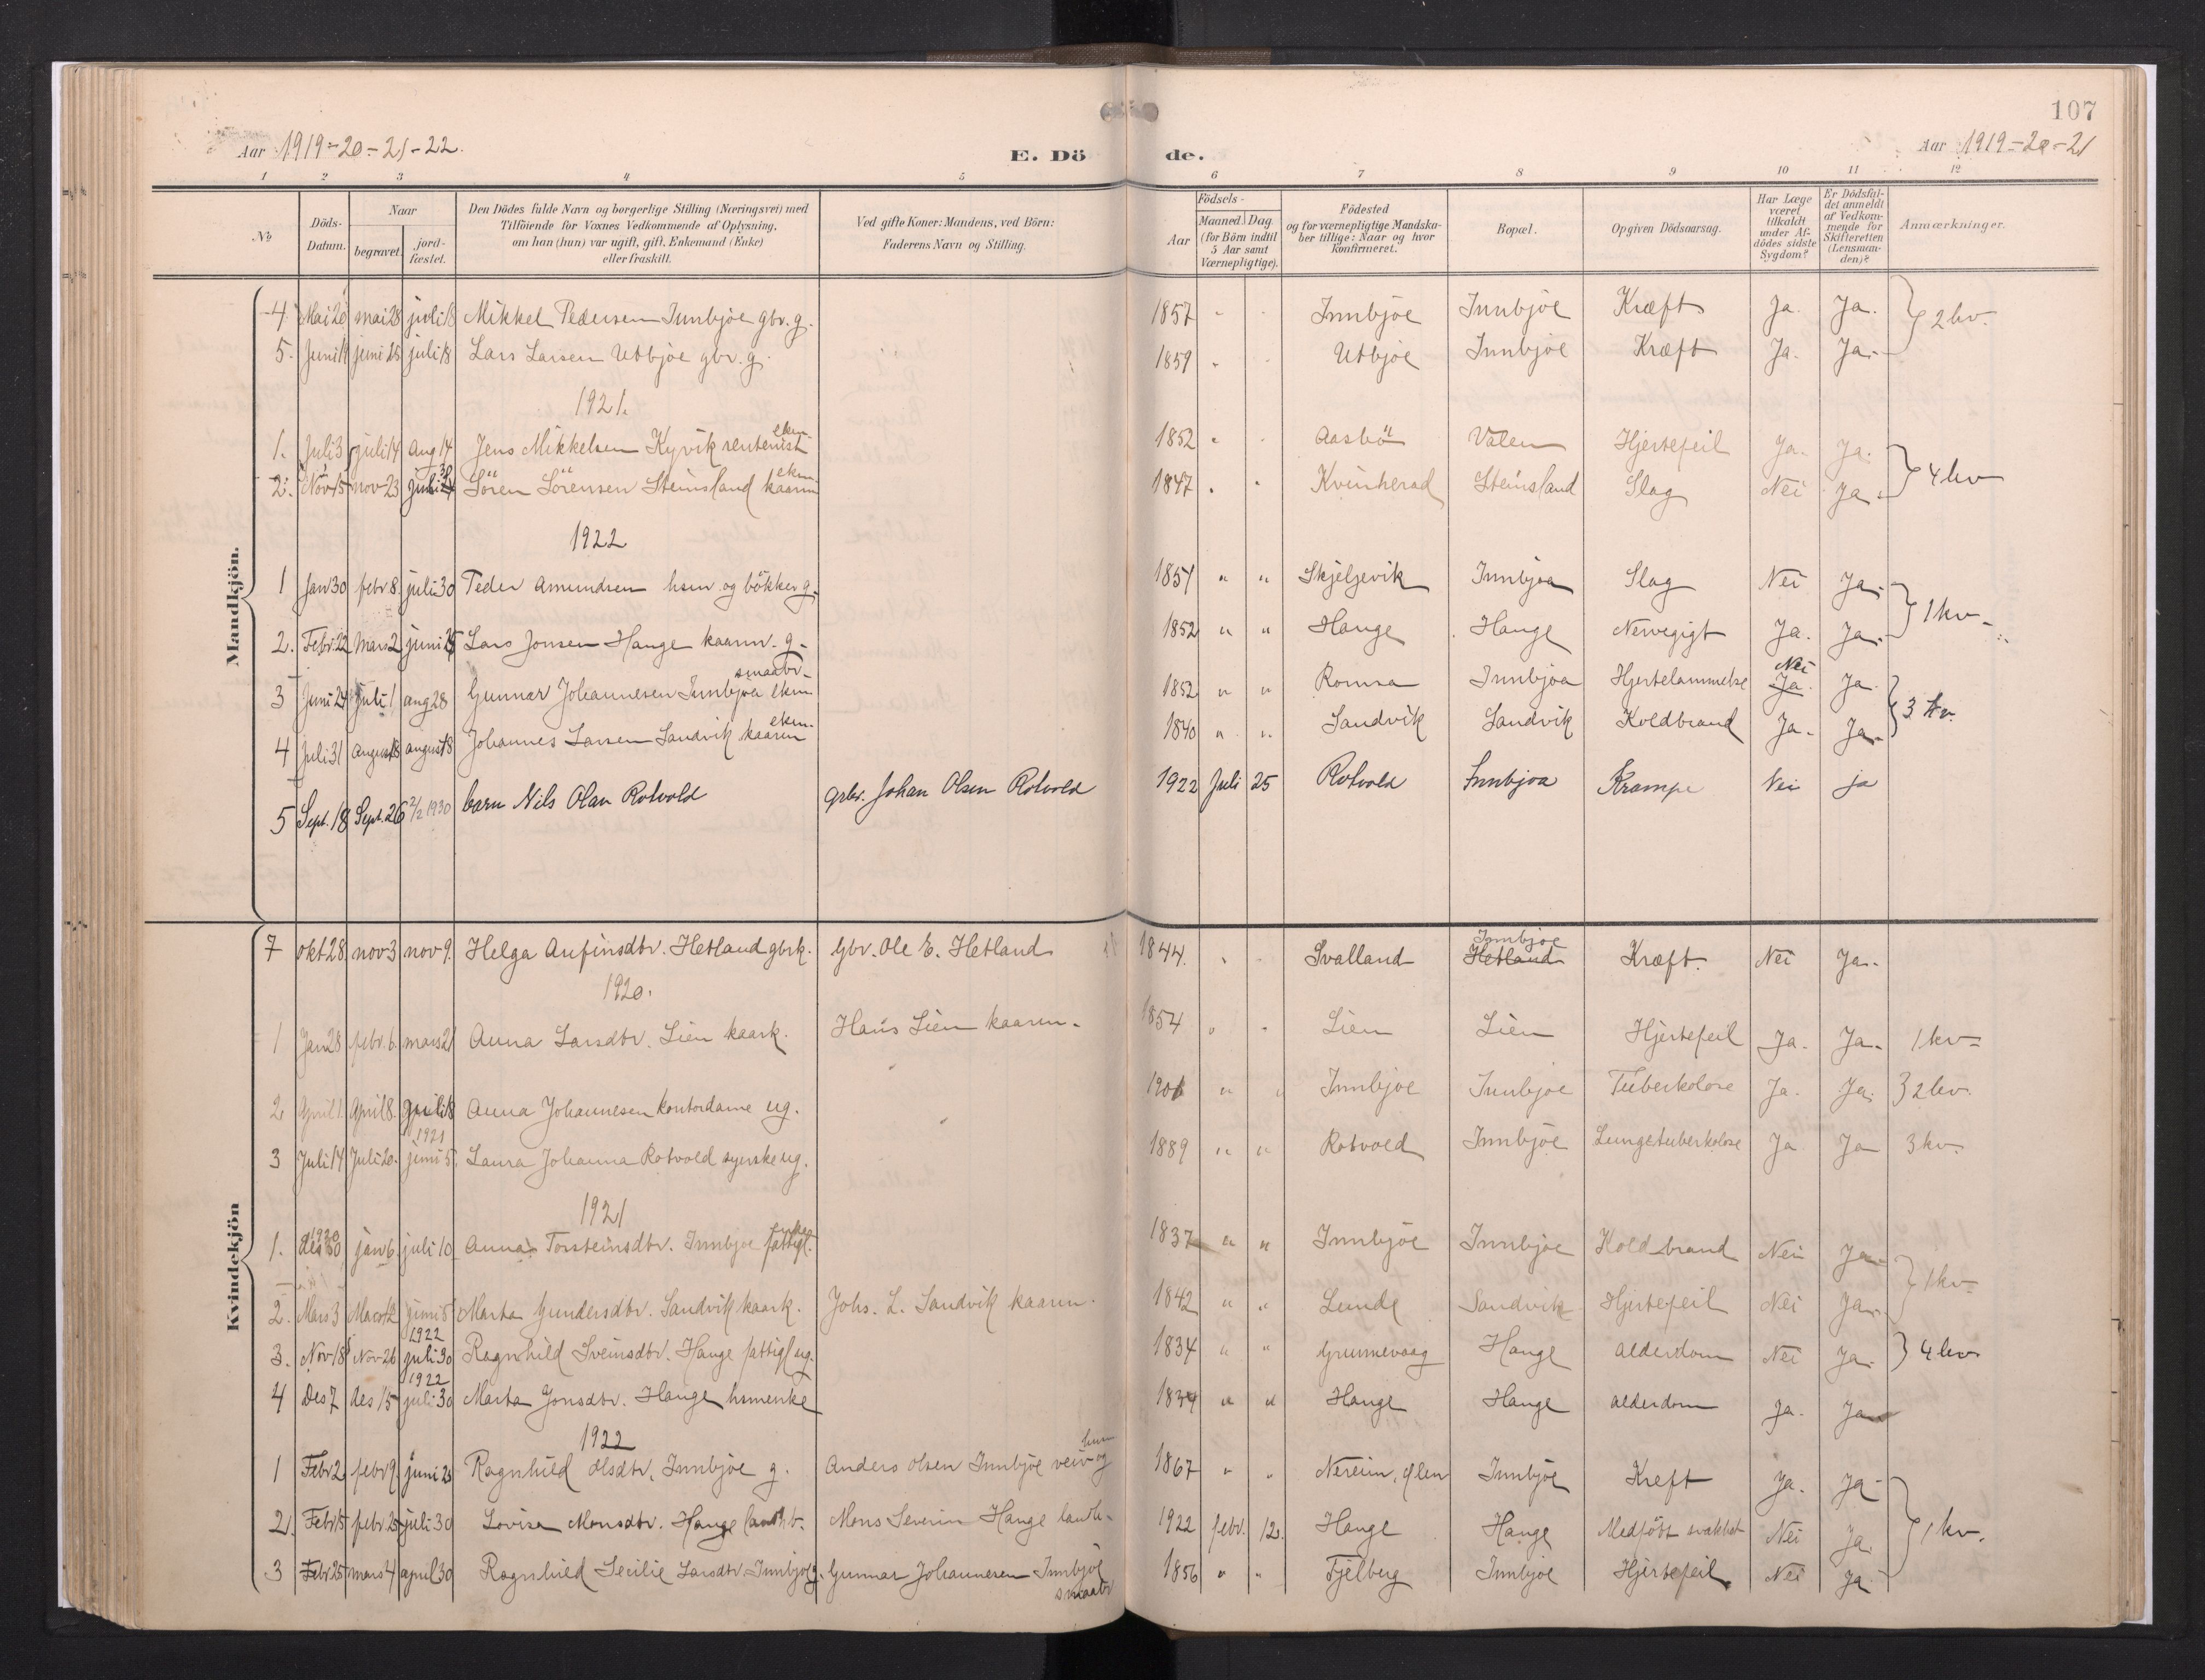 107
Aar 1919-20-21-22.
E. Dö
de.
Aar 1919-20-21
1 2 3 4 5 6 7 8 9 10 11 12
No
Döds-Datum.
Naar
begravet.
jord-fæstet.
Den Dödes fulde Navn og borgerlige Stilling (Næringsvei) med
Tilföiende for Voxnes Vedkommende af Oplysning,
om han (hun) var ugift, gift, Enkemand (Enke)
eller fraskilt.
Ved gifte Koner: Mandens, ved Börn:
Faderens Navn og Stilling.
Födsels-
Aar
Maaned. Dag
(for Börn indtil
5 Aar samt
Værnepligtige).
Födested
og for værnepligtige Mandska-
ber tillige: Naar og hvor
konfirmeret.
Bopæl.
Opgiven Dödsaarsag.
Har Læge
været
tilkaldt
under Af-
dödes sidste
Sygdom?
Er Dödsfal-
det anmeldt
af Vedkom-
mende for
Skifteretten
(Lensman-
den)?
Anmærkninger.
Mandkjön.
4 Mai 20 mai 28 juli 18 Mikkel Pedersen Innbjoe gbr. g. 1857 Innbjoe Innbjoe Kræft Ja. Ja. } 2 kv.
5. Juni 11 juni 25 juli 18 Lars Larsen Utbjoe gbr. g. 1859 Utbjoe Innbjoe Kræft Ja. Ja.
1921.
1. Juli 3 juli 14 Aug 14 Jens Mikkelsen Kyvik rentenist ekm. 1852 Aasbö Valen Hjertefeil Ja. Ja. } 4 kv
2. Nov 15 nov 23 Sören Sörensen Steinsland kaarm ekm. 1847 Kvinherad Steinsland Slag Nei Ja.
1922
1 Jan 30 febr 8. juli 30 Peder Amundsen hsm og bökker g. 1851 " " Skjeljevik Innbjoa Slag Nei Ja. } 1 kv.
2. Febr. 22 Mars 2 juni 25 Lars Jonsen Hauge kaarm. g. 1852 " " Hauge Hauge Nervegigt Ja. Ja.
3 Juni 24 juli 1 aug 28 Gunnar Johannesen Innbjoa smaabr. ekm 1852 " " Romsa Innbjoa Hjertelammelse Ja. Nei Ja. } 3 kv.
4 Juli 31 august 8 august 8 Johannes Larsen Sandvik kaarm ekm. 1840 " " Sandvik Sandvik Koldbrand Ja. Ja.
5 Sept. 18 Sept. 26 2/2 1930 barn Nils Olav Rotvold grbr. Johan Olsen Rotvold 1922 Juli 25 Rotvold Innbjoa Krampe Nei ja
Kvindekjön
7 okt 28 nov 3 nov 9. Helga Anfinsdtr. Hetland gbrk. Gbr. Ole E. Hetland 1844. Svalland Hetland Innbjoe Kræft. Nei Ja.
1920.
1 Jan 28 febr. 6. mars 21 Anna Larsdtr. Lien kaark. Hans Lien kaarm. 1854 Lien Lien Hjertefeil Ja. Ja. 1 kv
2 April 1. April 8. juli 18 Anna Johannesen kontordame ug. 1901 " " Innbjoe Innbjoe Tuberkolose Ja. Ja. } 2 kv.
3 Juli 14 Juli 20. 1921 juni 5 Laura Johanna Rotvold syerske ug. 1889 " " Rotvold Innbjoe Lungetuberkolose Ja Ja 3 kv.
1921
1. 1920 des 30 jan 6. juli 10 Anna Torsteinsdtr. Innbjoe fattigl. enke 1837 " " Innbjoe Innbjoe Koldbrand Nei Ja. } 1 kv
2. Mars 3 Mars 12 juni 5 Marta Gundersdtr. Sandvik kaark. Johs. L. Sandvik kaarm. 1842 " " Lunde Sandvik Hjertefeil Nei Ja.
3. Nov 18 Nov 26 1922 juli 30 Ragnhild Sveinsdtr. Hauge fattigl ug. 1834 " " Hauge Alderdom Nei Ja. } 4 kv
4 Des 7 des 15 1922 juli 30 Marta Jonsdtr. Hauge hsmenke 1834 " " Hauge Hauge Alderdom Ja. Ja
1922
1 Febr 2 febr 9. juni 25 Ragnhild Olsdtr. Innbjoe g. Anders Olsen Innbjoe 1867 " " Nereim, Ølen Innbjoe Kreft Ja. Ja } 1 kv.
2. Febr 15 febr 25 juli 30 Lovise Monsdtr. Hauge Mons Severin Hauge landh. 1922 febr. 12. Hauge Hauge Medfött svakhet Nei Ja.
3 Febr 25 mars 4 april 30 Ragnhild Secilie Larsdtr. Innbjoe g. Gunnar Johannesen Innbjoe smaabr 1856 " " Fjelberg Innbjoe Hjertefeil Nei Ja.